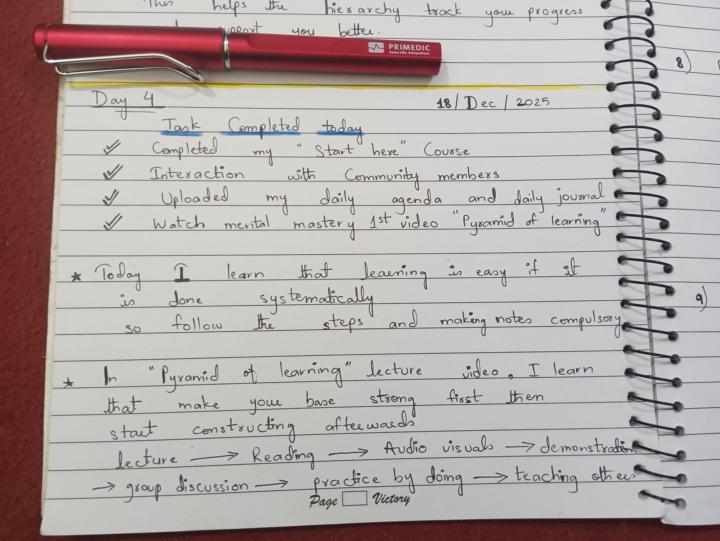 This helps the hierarchy track your progress
support you better.
PRIMEDIC
Saves Life. Everywhere.
8)
Day 4 18/Dec/2025
Task Completed today
Completed my "Start here" Course
Interaction with Community members
Uploaded my daily agenda and daily journal
Watch mental mastery 1st video "Pyramid of learning"
* Today I learn that learning is easy if it
is done systematically
so follow the steps and making notes compulsory
9)
* In "Pyramid of learning" lecture video, I learn
that make your base strong first then
start constructing afterwards
lecture → Reading → Audio visuals → demonstration
→ group discussion → practice by doing → teaching others
Page Victory